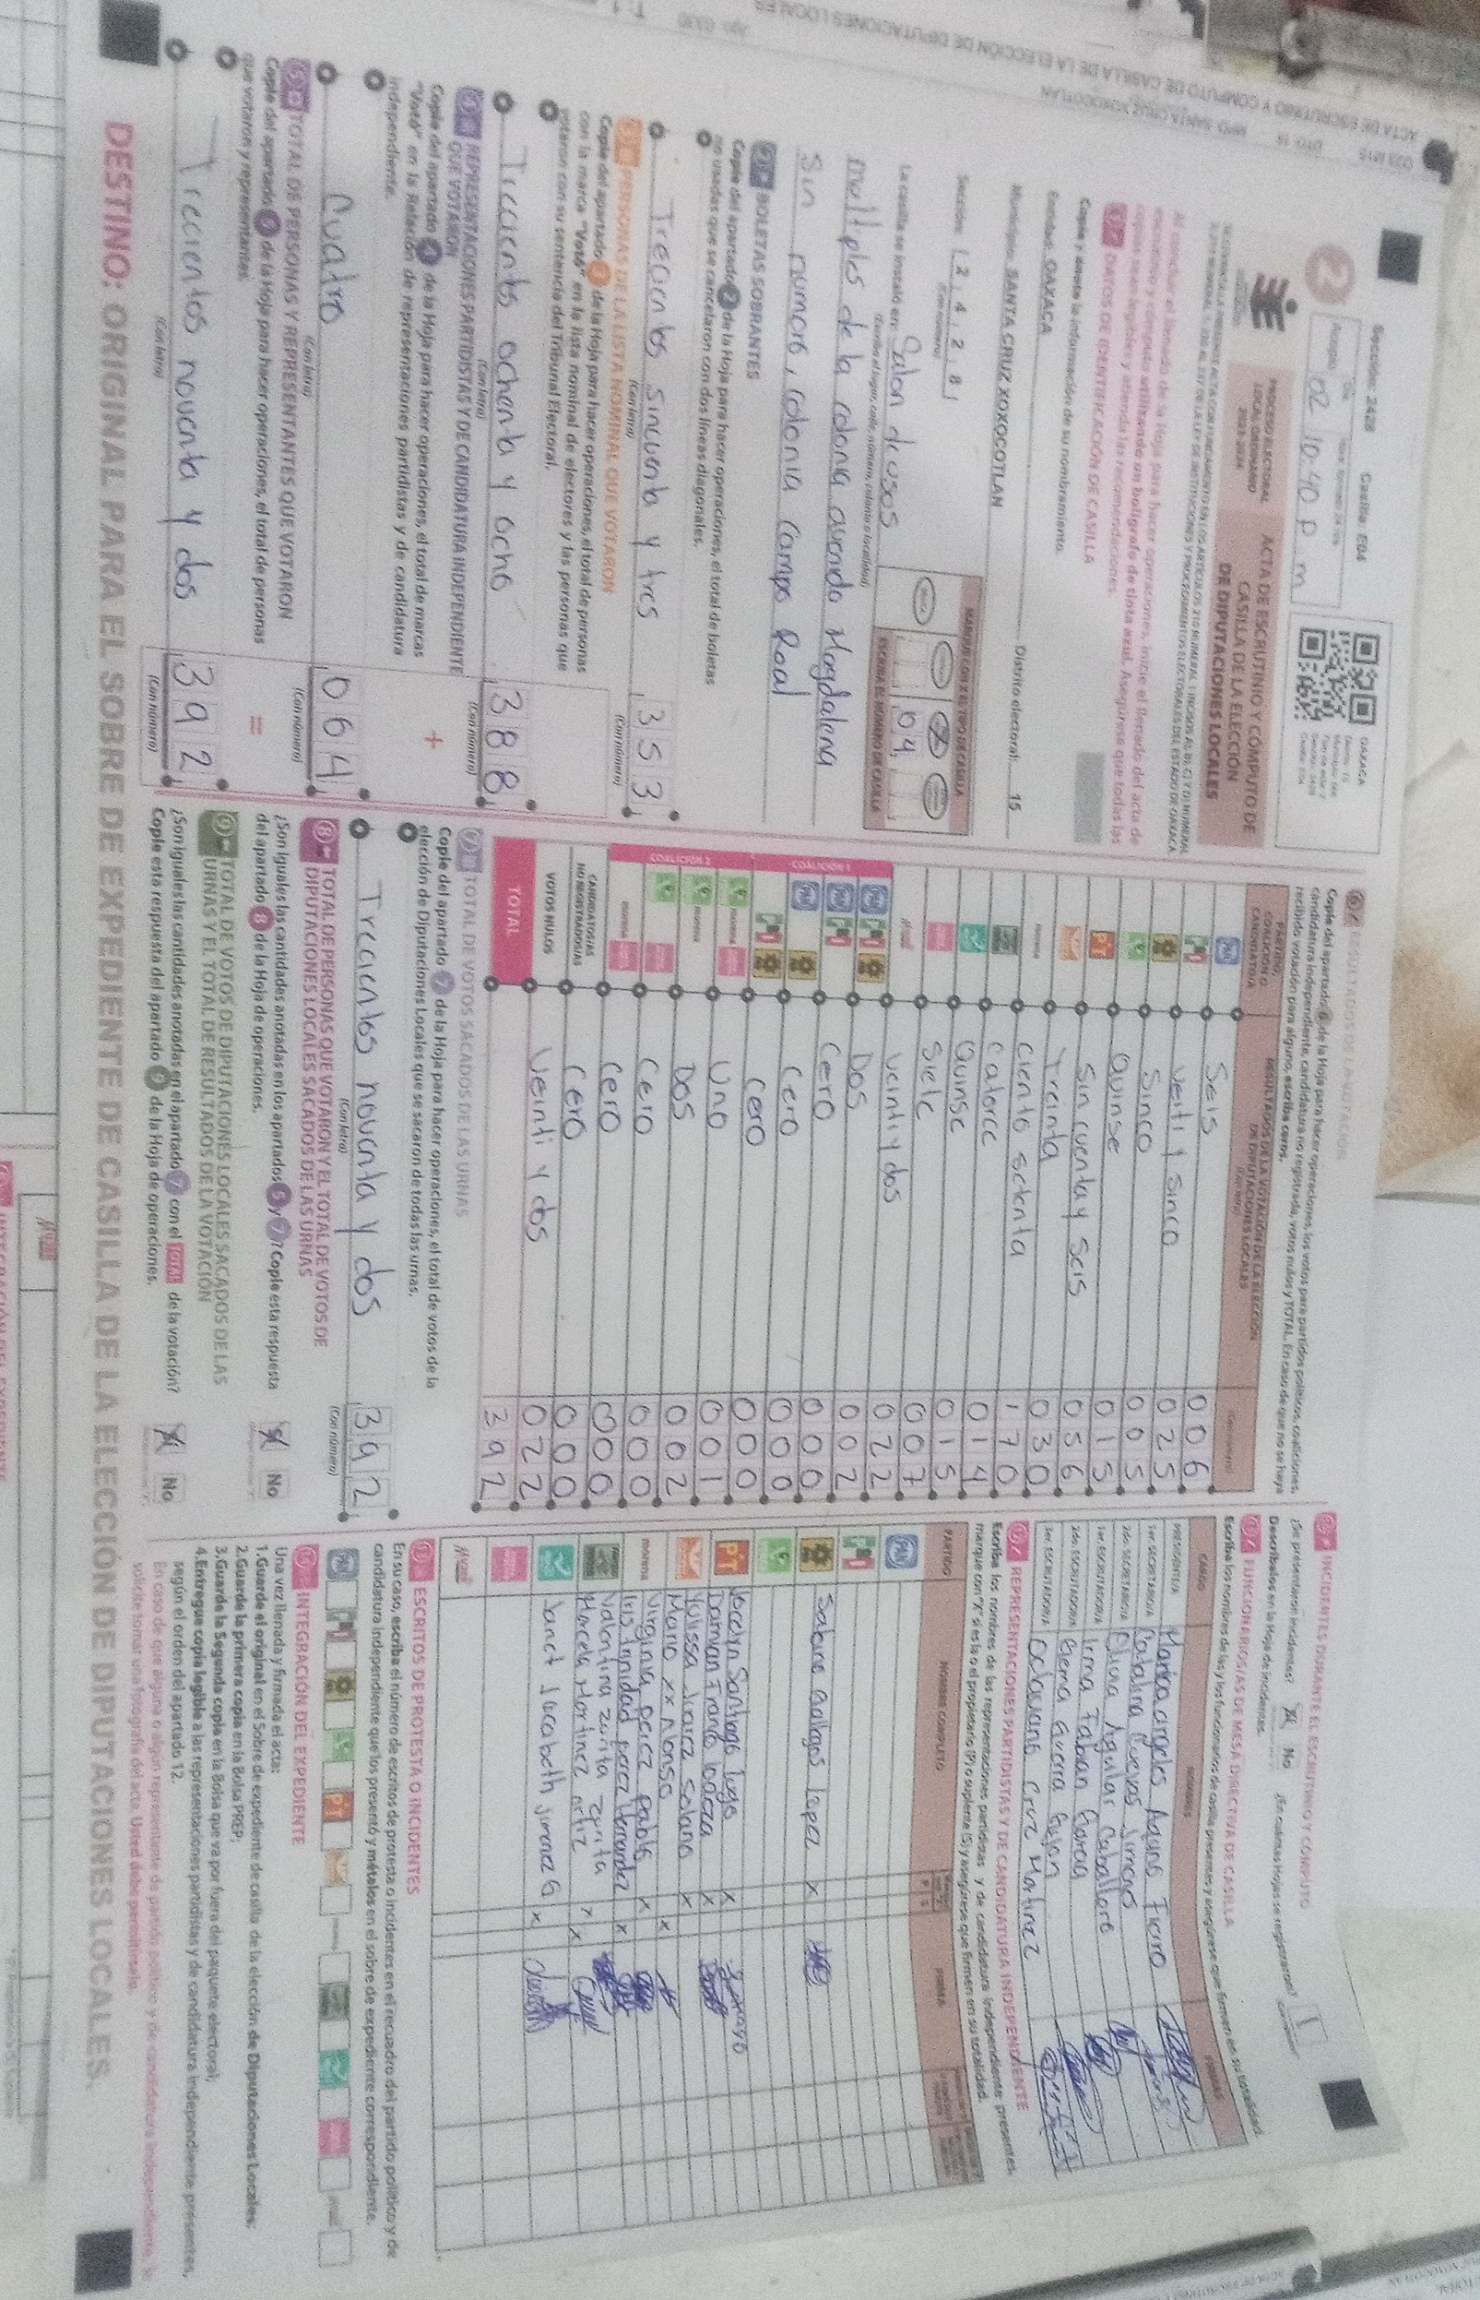 Sección: 2428 Casilla: E04
OAXACA
Acopio 02 10:40 p m
PROCESO ELECTORAL
LOCAL ORDINARIO
2023-2024
ACTA DE ESCRUTINIO Y CÓMPUTO DE
CASILLA DE LA ELECCIÓN
DE DIPUTACIONES LOCALES
Al concluir el llenado de la Hoja para hacer operaciones, inicie el llenado del acta de
escrutinio y cómputo utilizando un bolígrafo de tinta azul. Asegúrese que todas las
copias sean legibles y atienda las recomendaciones.
DATOS DE IDENTIFICACIÓN DE CASILLA
Copie y anote la información de su nombramiento.
Entidad: OAXACA Distrito electoral: 15
Municipio: SANTA CRUZ XOXOCOTLAN
Sección: 2 4 2 8
(Con número)
MARQUE CON X EL TIPO DE CASILLA
04
ESCRIBA EL NÚMERO DE CASILLA
La casilla se instaló en: Salon de usos
(Escriba el lugar, calle, número, colonia o localidad)
moltiples de la colonia avenida Magdalena
sin numero, colonia campo Real
2 BOLETAS SOBRANTES
Copie del apartado 2 de la Hoja para hacer operaciones, el total de boletas
no usadas que se cancelaron con dos líneas diagonales.
Trecientos sincuenta y tres 353
(Con letra) (Con número)
3 PERSONAS DE LA LISTA NOMINAL QUE VOTARON
Copie del apartado 3 de la Hoja para hacer operaciones, el total de personas
con la marca "Votó" en la lista nominal de electores y las personas que
votaron con su sentencia del Tribunal Electoral.
Trecientos ochenta y ocho 388
(Con letra) (Con número)
4 REPRESENTACIONES PARTIDISTAS Y DE CANDIDATURA INDEPENDIENTE
QUE VOTARON
Copie del apartado 4 de la Hoja para hacer operaciones, el total de marcas
"Votó" en la Relación de representaciones partidistas y de candidatura
independiente.
+
Cuatro 064
(Con letra) (Con número)
5 TOTAL DE PERSONAS Y REPRESENTANTES QUE VOTARON
Copie del apartado 5 de la Hoja para hacer operaciones, el total de personas
que votaron y representantes.
=
Trecientos noventa y dos 392
(Con letra) (Con número)
6 RESULTADOS DE LA VOTACIÓN
Copie del apartado 6 de la Hoja para hacer operaciones, los votos para partidos políticos, coaliciones,
candidatura independiente, candidatura no registrada, votos nulos y TOTAL. En caso de que no se haya
recibido votación para alguno, escriba ceros.
PARTIDO,
COALICIÓN O
CANDIDATURA
RESULTADOS DE LA VOTACIÓN DE LA ELECCIÓN
DE DIPUTACIONES LOCALES
PAN Seis 006
PRI veiti y sinco 025
Sinco 005
Quinse 015
PT sin cuenta y seis 056
Treinta 030
morena ciento setenta 170
Catorce 014
Quinse 015
Siete 007
veinti y dos 022
COALICIÓN 1
Dos 002
Cero 000
Cero 000
Cero 000
COALICIÓN 2
Uno 001
Dos 002
Cero 000
Cero 000
CANDIDATOS/AS
NO REGISTRADOS/AS Cero 000
VOTOS NULOS Veinti y dos 022
TOTAL 392
7 TOTAL DE VOTOS SACADOS DE LAS URNAS
Copie del apartado 7 de la Hoja para hacer operaciones, el total de votos de la
elección de Diputaciones Locales que se sacaron de todas las urnas.
Trecientos noventa y dos 392
(Con letra) (Con número)
8 TOTAL DE PERSONAS QUE VOTARON Y EL TOTAL DE VOTOS DE
DIPUTACIONES LOCALES SACADOS DE LAS URNAS
¿Son iguales las cantidades anotadas en los apartados 5 y 7? Copie esta respuesta
del apartado 8 de la Hoja de operaciones.
No
9 TOTAL DE VOTOS DE DIPUTACIONES LOCALES SACADOS DE LAS
URNAS Y EL TOTAL DE RESULTADOS DE LA VOTACIÓN
¿Son iguales las cantidades anotadas en el apartado 7 con el TOTAL de la votación?
Copie esta respuesta del apartado 9 de la Hoja de operaciones.
No
INCIDENTES DURANTE EL ESCRUTINIO Y CÓMPUTO
¿Se presentaron incidentes? No ¿En cuántas Hojas se registraron? 1
Descríbalos en la Hoja de incidentes.
FUNCIONARIOS/AS DE MESA DIRECTIVA DE CASILLA
Escriba los nombres de las y los funcionarios de casilla presentes y asegúrese que firmen en su totalidad.
CARGO NOMBRES FIRMAS
PRESIDENTE/A Marica angeles Aquino Fierro
1er. SECRETARIO/A Catalina Cuevas Jimenes
2do. SECRETARIO/A Olivia Aguilar Caballero
1er. ESCRUTADOR/A Irma Faban Garcia
2do. ESCRUTADOR/A Elema Guerra Gulon
3er. ESCRUTADOR/A Octaviano Cruz Martinez
REPRESENTACIONES PARTIDISTAS Y DE CANDIDATURA INDEPENDIENTE
Escriba los nombres de las representaciones partidistas y de candidatura independiente presentes,
marque con "X" si es la o el propietario (P) o suplente (S) y asegúrese que firmen en su totalidad.
PARTIDO NOMBRE COMPLETO FIRMA
Sabino Gallegos Lopez X
PT Jocelyn Santiago Lugo X
Damian Franco X
Yulissa Juarez Solano X
Mario xx Alonso X
morena Virginia perez pablo X
Iris Trinidad perez Hernandez X
Valentina zurita zurita X
Marcela Martinez ortiz X
Janet Jacabeth Jimenez G X
ESCRITOS DE PROTESTA O INCIDENTES
En su caso, escriba el número de escritos de protesta o incidentes en el recuadro del partido político y de
candidatura independiente que los presentó y métalos en el sobre de expediente correspondiente.
INTEGRACIÓN DEL EXPEDIENTE
Una vez llenada y firmada el acta:
1. Guarde el original en el Sobre de expediente de casilla de la elección de Diputaciones Locales;
2. Guarde la primera copia en la Bolsa PREP;
3. Guarde la Segunda copia en la Bolsa que va por fuera del paquete electoral;
4. Entregue copia legible a las representaciones partidistas y de candidatura independiente presentes,
según el orden del apartado 12.
En caso de que alguna o algún representante de partido político y de candidatura independiente, le
solicite tomar una fotografía del acta, Usted debe permitírselo.
DESTINO: ORIGINAL PARA EL SOBRE DE EXPEDIENTE DE CASILLA DE LA ELECCIÓN DE DIPUTACIONES LOCALES.